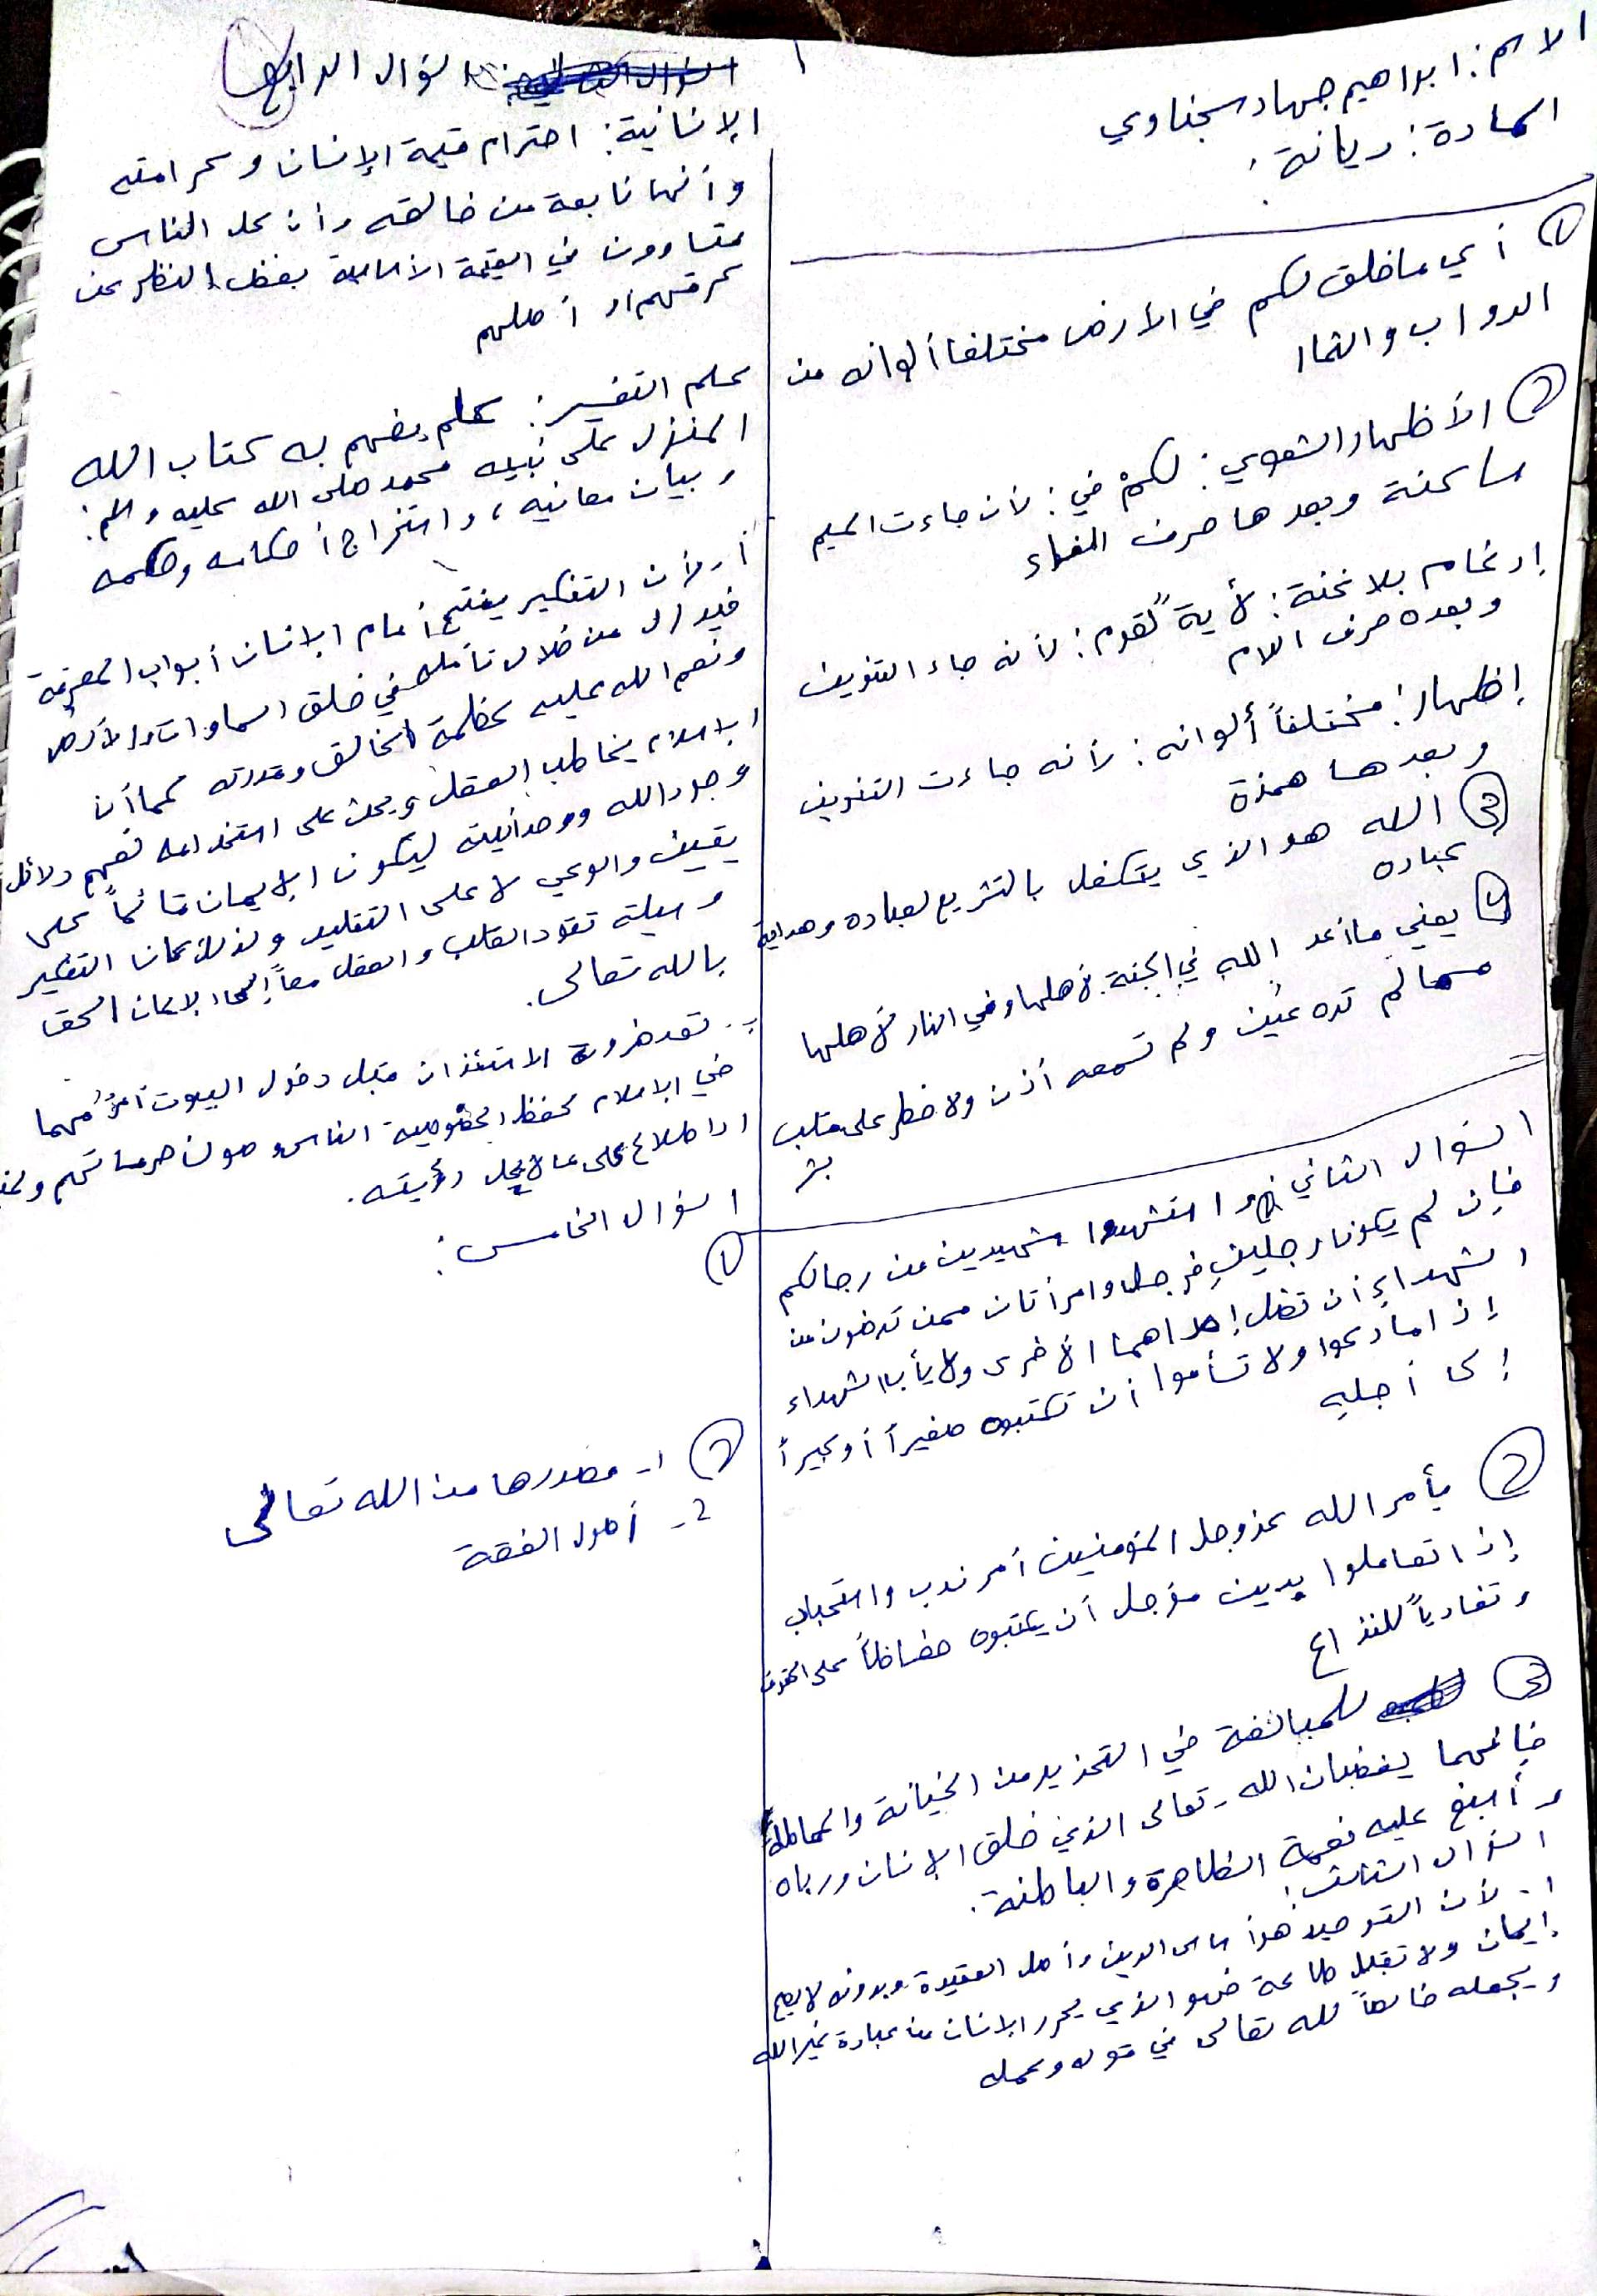 الاسم: ابراهيم جهاد سجناوي
المادة: ديانة.
① أي ما خلق لكم في الأرض مختلفا ألوانه من
الدواب والثمار
② الأظهار الشفوي: لكمْ في: لأن جاءت الميم
ساكنة وبعدها حرف الفاء
إدغام بلا غنة: لأيةً لقوم: لأنه جاء التنوين
وبعده حرف الام
إظهار: مختلفاً ألوانه: لأنه جاءت التنوين
وبعدها همزة
③ الله هو الذي يتكفل بالتشريع لعباده وهداية
عباده
④ يعني ما أعد الله في الجنة لأهلها وفي النار لأهلها
مما لم تره عين ولم تسمعه أذن ولا خطر على قلب
بشر
السؤال الثاني: ① واستشهدوا شهيدين من رجالكم
فإن لم يكونا رجلين فرجل وامرأتان ممن ترضون من
الشهداء أن تضل إحداهما الأخرى ولا يأب الشهداء
إذا ما دعوا ولا تسأموا أن تكتبوه صغيراً أو كبيراً
إلى أجله
② يأمر الله عزوجل المؤمنين أمر ندب واستحباب
إذا تعاملوا بدين مؤجل أن يكتبوه حفاظاً على الحقوق
وتفادياً للنزاع
③ للمبالغة في التحذير من الخيانة والمماطلة
فإنهما يغضبان الله - تعالى الذي خلق الإنسان ورباه
وأسبغ عليه نعمه الظاهرة والباطنة.
السؤال الثالث:
١- لأن التوحيد هو أساس الدين وأصل العقيدة وبدونه لا يصح
إيمان ولا تقبل طاعة فهو الذي يحرر الإنسان من عبادة غير الله
ويجعله خالصاً لله تعالى في قوله وعمله
السؤال الرابع
الإنسانية: احترام قيمة الإنسان وكرامته
وأنها نابعة من خالقه وأن كل الناس
متساوون في القيمة الأساسية بغض النظر عن
عرقهم أو أصلهم
علم التفسير: علم يفهم به كتاب الله
المنزل على نبيه محمد صلى الله عليه وسلم:
وبيان معانيه، واستخراج أحكامه وحكمه
أ- لأن التفكير يفتح أمام الإنسان أبواب المعرفة
فيدرك من خلال تأمله في خلق السماوات والأرض
ونعم الله عليه عظمة الخالق وقدرته كما أن
الإسلام يخاطب العقل ويحث على استخدامه لفهم دلائل
وجود الله ووحدانيته ليكون الإيمان قائماً على
يقين والوعي لا على التقليد ولذلك كان التفكير
وسيلة تقود القلب والعقل معاً إلى الإيمان الحق
بالله تعالى.
ب- تعد ضرورة الاستئذان قبل دخول البيوت أمرً مهما
في الإسلام لحفظ الخصوصية الناس وصون حرماتهم
الاطلاع على ما لا يحل رؤيته.
السؤال الخامس:
①
② ١- مصدرها من الله تعالى
2- أصول الفقة